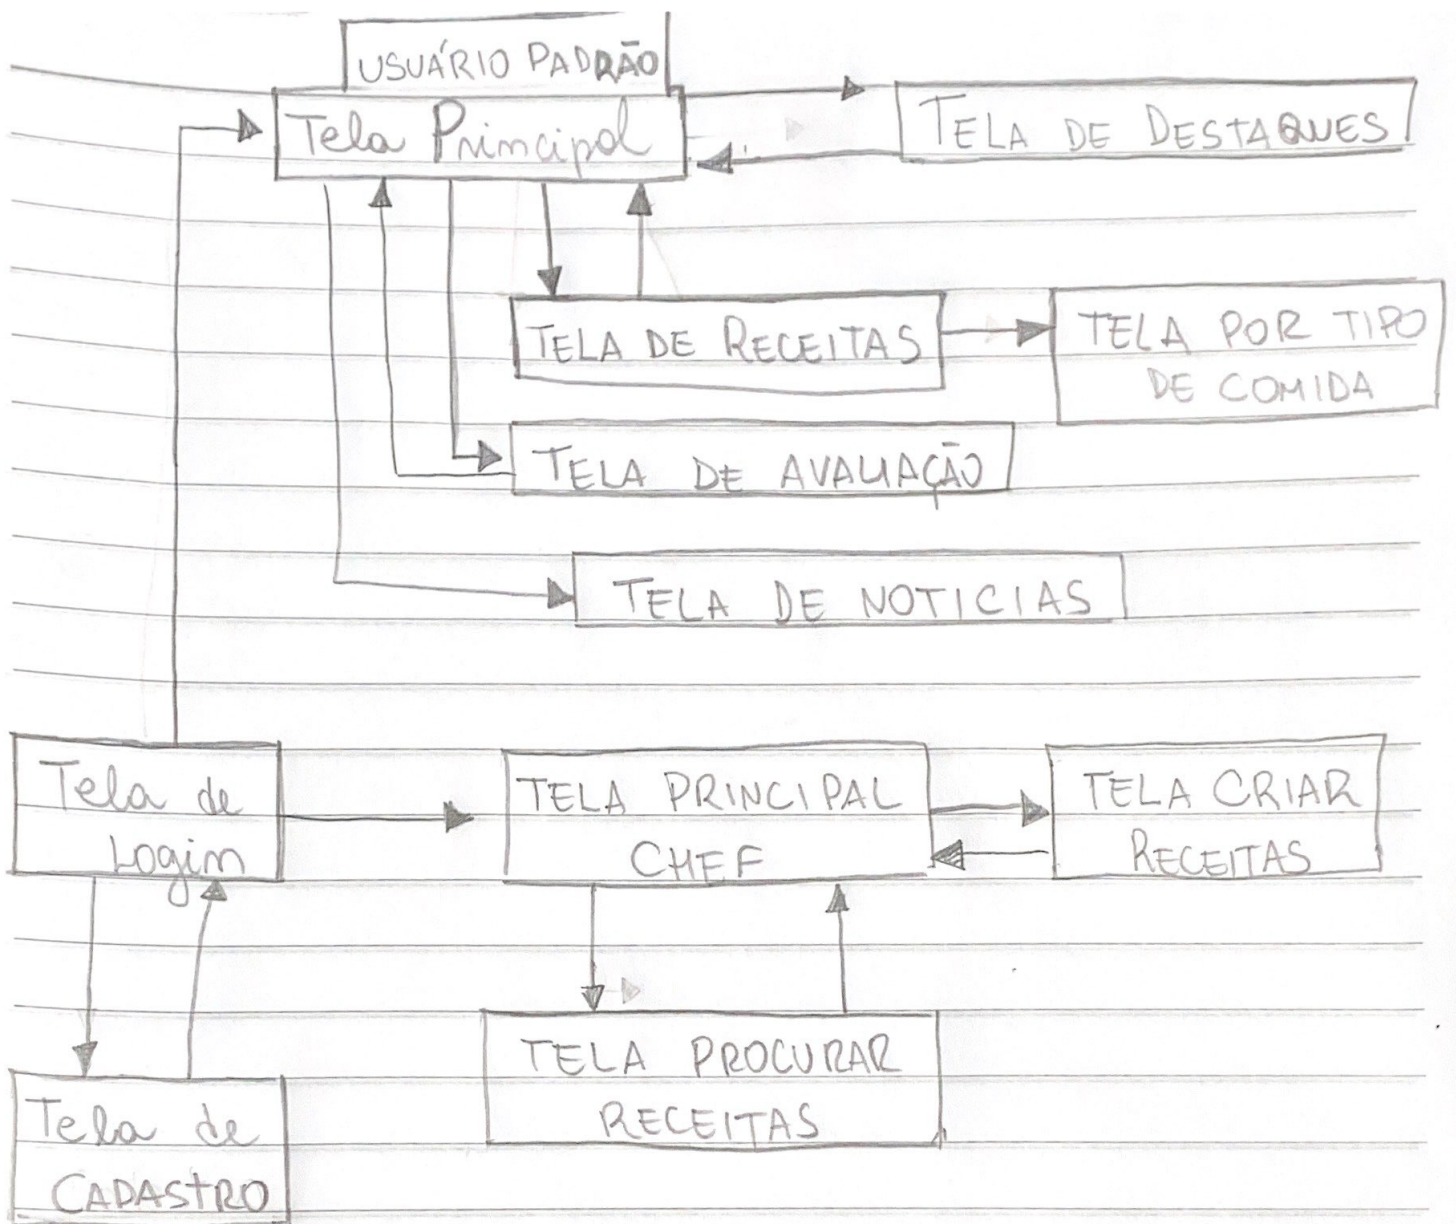 USUÁRIO PADRÃO
Tela Principal
TELA DE DESTAQUES
TELA DE RECEITAS
TELA POR TIPO
DE COMIDA
TELA DE AVALIAÇÃO
TELA DE NOTICIAS
Tela de
Login
TELA PRINCIPAL
CHEF
TELA CRIAR
RECEITAS
TELA PROCURAR
RECEITAS
Tela de
CADASTRO